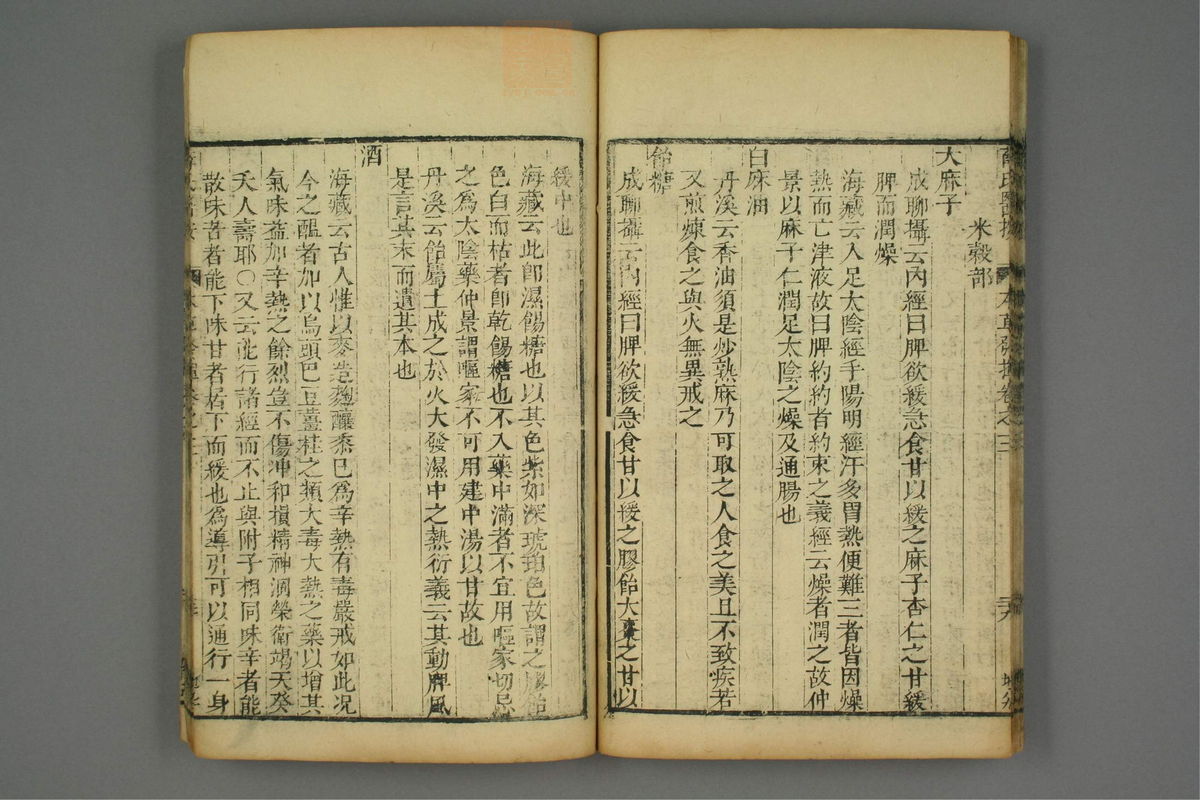 米穀部
大麻子
成聊攝云內經曰脾欲緩急食甘以緩之麻子杏仁之甘緩
脾而潤燥
海藏云入足太陰經手陽明經汗多胃熱便難三者皆因燥
熱而亡津液故曰脾約約者約束之義經云燥者潤之故仲
景以麻子仁潤足太陰之燥及通腸也
白麻油
丹溪云香油須是炒熟麻乃可取之人食之美且不致疾若
又煎煉食之與火無異戒之
飴糖
成聊攝云內經曰脾欲緩急食甘以緩之膠飴大棗之甘以
緩中也
海藏云此卽濕餳糖也以其色紫如深琥珀色故謂之膠飴
色白而枯者卽乾餳糖也不入藥中滿者不宜用嘔家切忌
之爲太陰藥仲景謂嘔家不可用建中湯以甘故也
丹溪云飴屬土成之於火大發濕中之熱衍義云其動脾風
是言其末而遺其本也
酒
海藏云古人惟以麥造麯釀黍已爲辛熱有毒嚴戒如此况
今之醞者加以烏頭巴豆薑桂之類大毒大熱之藥以增其
氣味益加辛熱之餘烈豈不傷冲和損精神涸榮衛竭天癸
夭人壽耶○又云能行諸經而不止與附子相同味辛者能
散味苦者能下味甘者居下而緩也爲導引可以通行一身